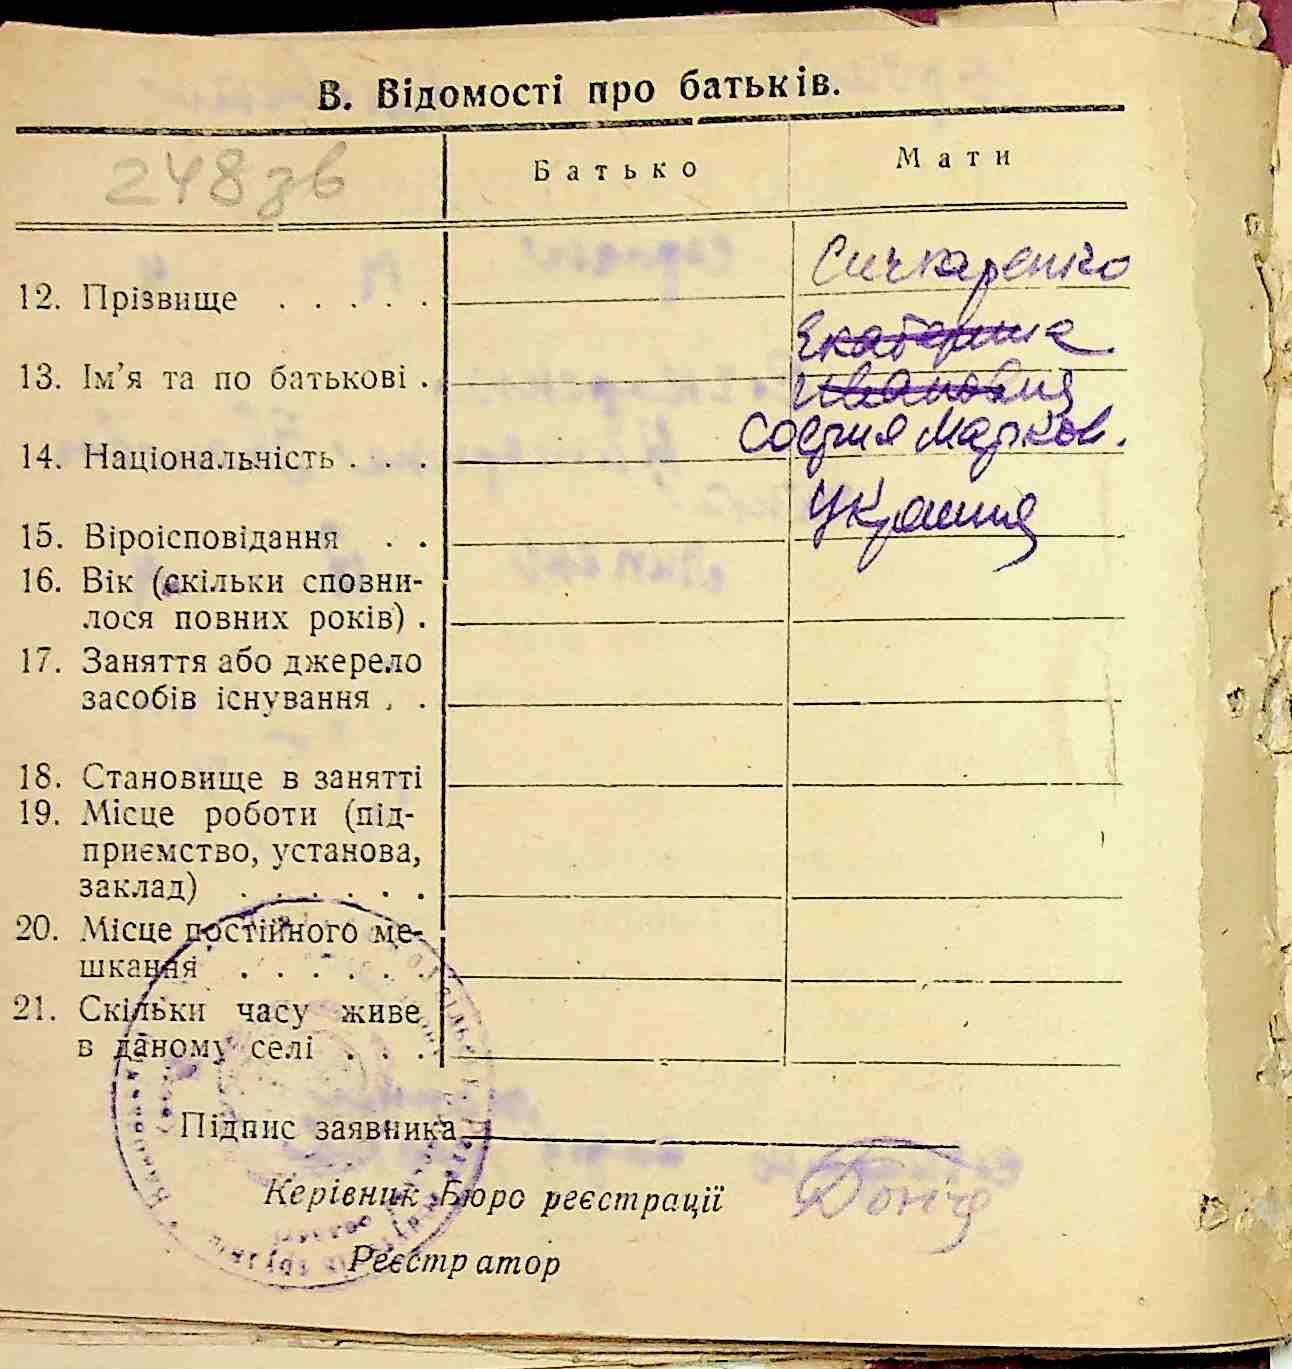 В. Відомості про батьків.
248зв
Батько
Мати
12. Прізвище . . . . .
Сичкаренко
13. Ім’я та по батькові .
Екатерина
Ивановна
София Марков.
14. Національність . . .
Украинка
15. Віроісповідання . .
16. Вік (скільки сповни-
лося повних років) .
17. Заняття або джерело
засобів існування . .
18. Становище в занятті
19. Місце роботи (під-
приємство, установа,
заклад) . . . . . .
20. Місце постійного ме-
шкання . . . . . .
21. Скільки часу живе
в даному селі . . .
Підпис заявника
Керівник Бюро реєстрації
Реєстратор